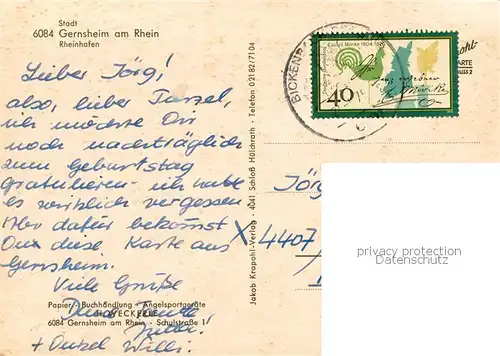 Stadt
6084 Gernsheim am Rhein
Rheinhafen
Lieber Jörg!
also, lieber
ich möchte Dir
noch nachträglich
zum Geburtstag
gratulieren - ich habe
es wirklich vergessen
Aber dafür bekommst
Du diese Karte aus
Gernsheim.
Viele Grüße
Papier - Buchhandlung - Angelsportgeräte
6084 Gernsheim am Rhein - Schulstraße 1
+ Onkel Willi.
Jakob Krapohl-Verlag - 4041 Schloß Hülchrath - Telefon 02182/7104
BICKENBA
Eduard Mörike 1804-1875
40
Jörg
X 4407
privacy protection
of personal data